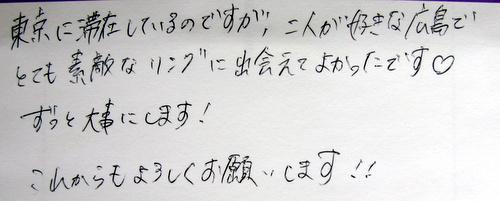 東京に滞在しているのですが、二人が好きな広島で
とても素敵なリングに出会えてよかったです♡
ずっと大事にします!
これからもよろしくお願いします!!